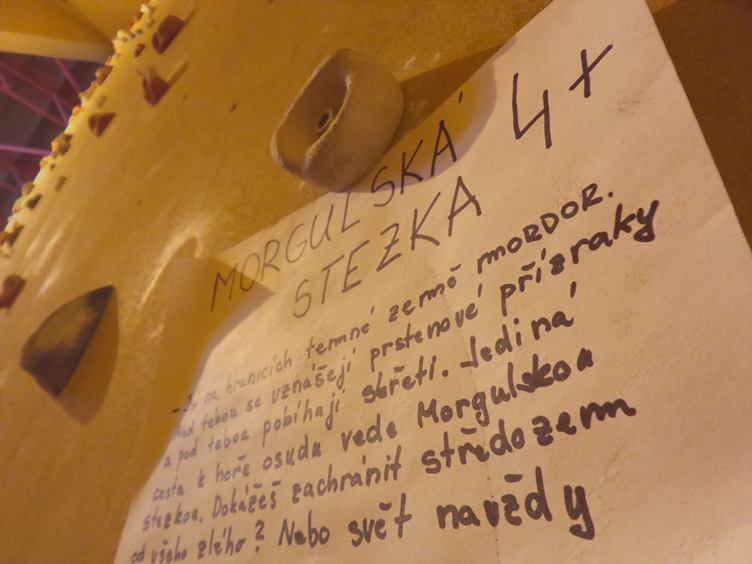 MORGULSKÁ 4+
STEZKA
- Jsi na hranicích temné země MORDOR.
Nad tebou se vznášejí prstenové přízraky
a pod tebou pobíhají skřeti. Jediná
cesta k hoře osudu vede Morgulskou
stezkou. Dokážeš zachránit středozem
od všeho zlého? Nebo svět navždy